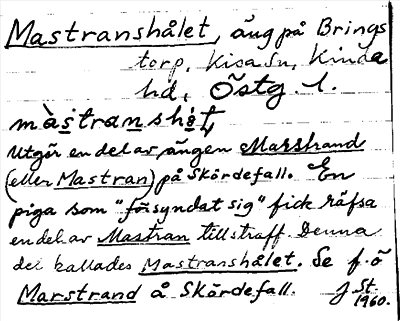 Mastranshålet, äng på Brings
torp, Kisa sn, Kinda
hd, Östg. l.
màstranshåt,
Utgör en del av ängen Marstrand
(eller Mastran) på Skördefall. En
piga som "försyndat sig" fick räfsa
en del av Mastran till straff. Denna
del kallades Mastranshålet. Se f. ö
Marstrand å Skördefall. J St.
1960.